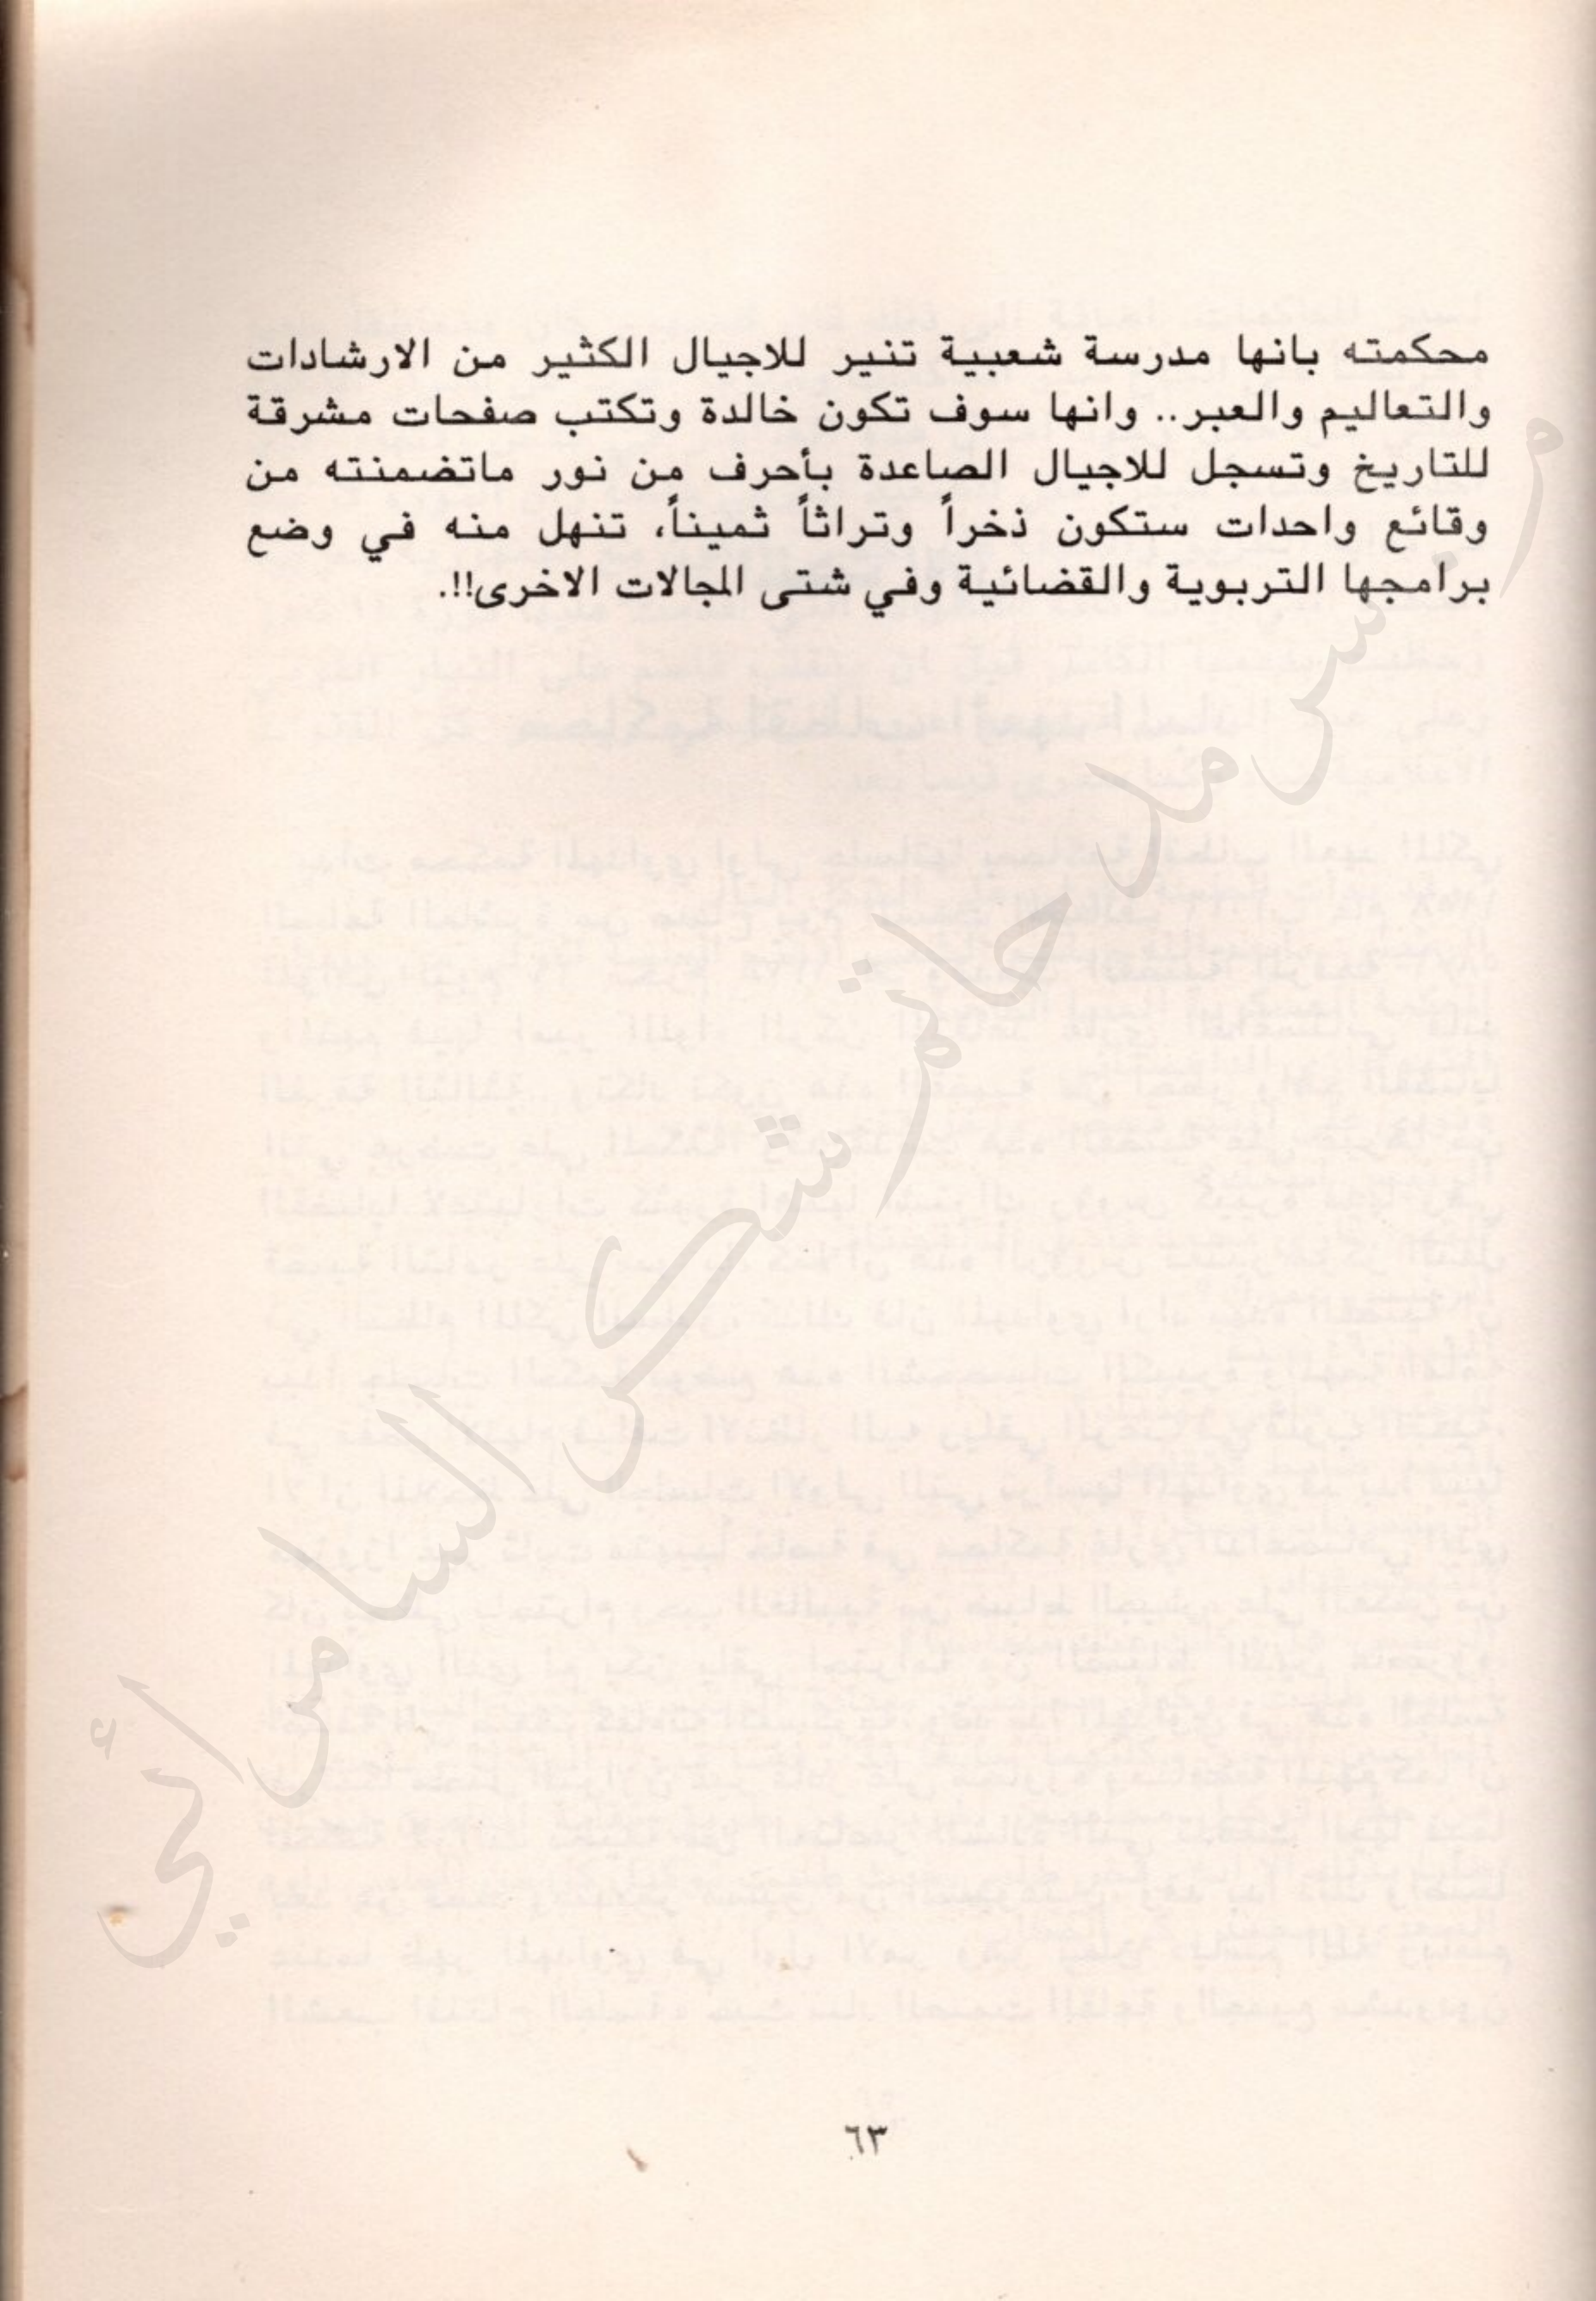 محكمته بانها مدرسة شعبية تنير للاجيال الكثير من الارشادات
والتعاليم والعبر.. وانها سوف تكون خالدة وتكتب صفحات مشرقة
للتاريخ وتسجل للاجيال الصاعدة بأحرف من نور ماتضمنته من
وقائع واحدات ستكون ذخراً وتراثاً ثميناً، تنهل منه في وضع
برامجها التربوية والقضائية وفي شتى المجالات الاخرى!!.
م. سرمد حاتم شكر السامرائي
٦٣